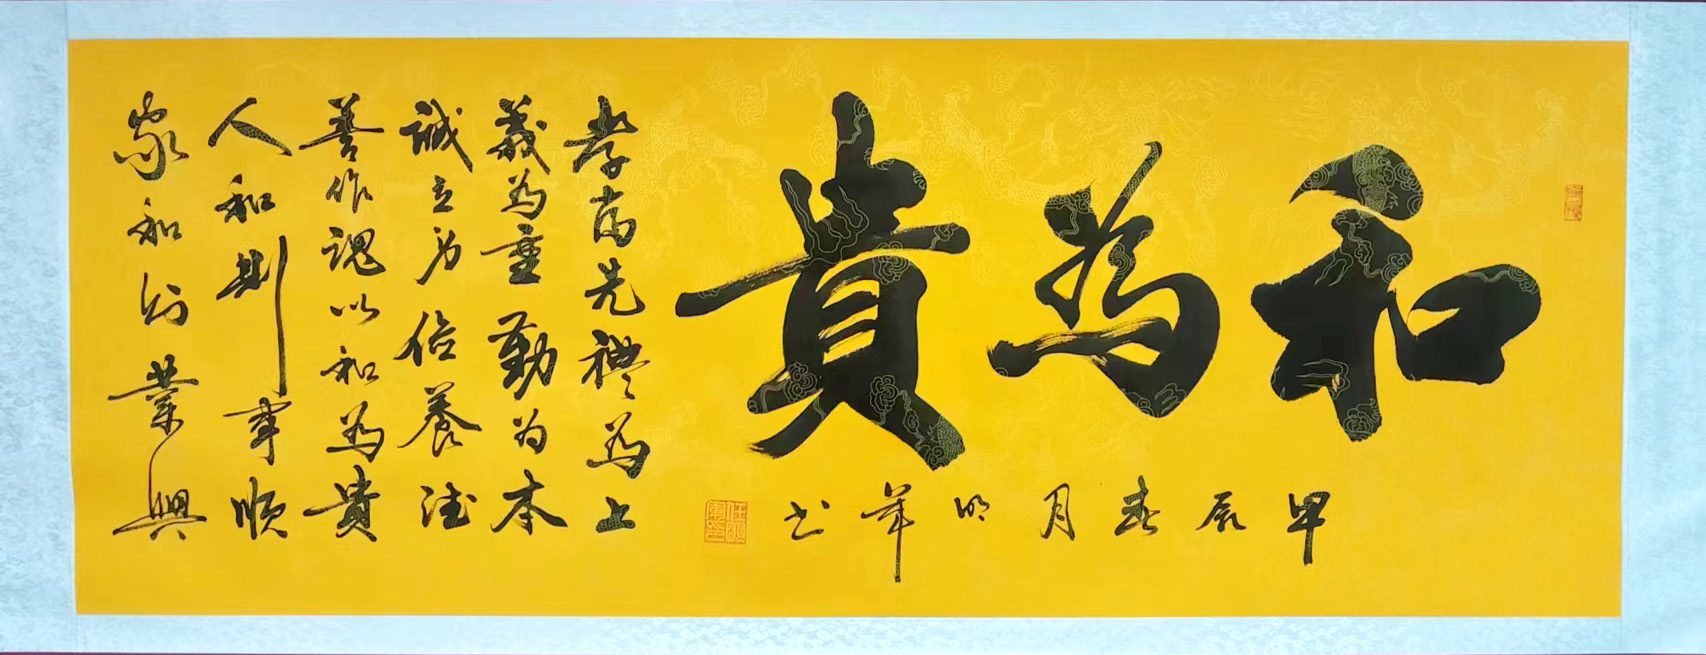 和為貴
甲辰春月明军书
孝当先禮為上
義為重勤为本
誠立身俭養德
善作魂以和為貴
人和則事順
家和则業興